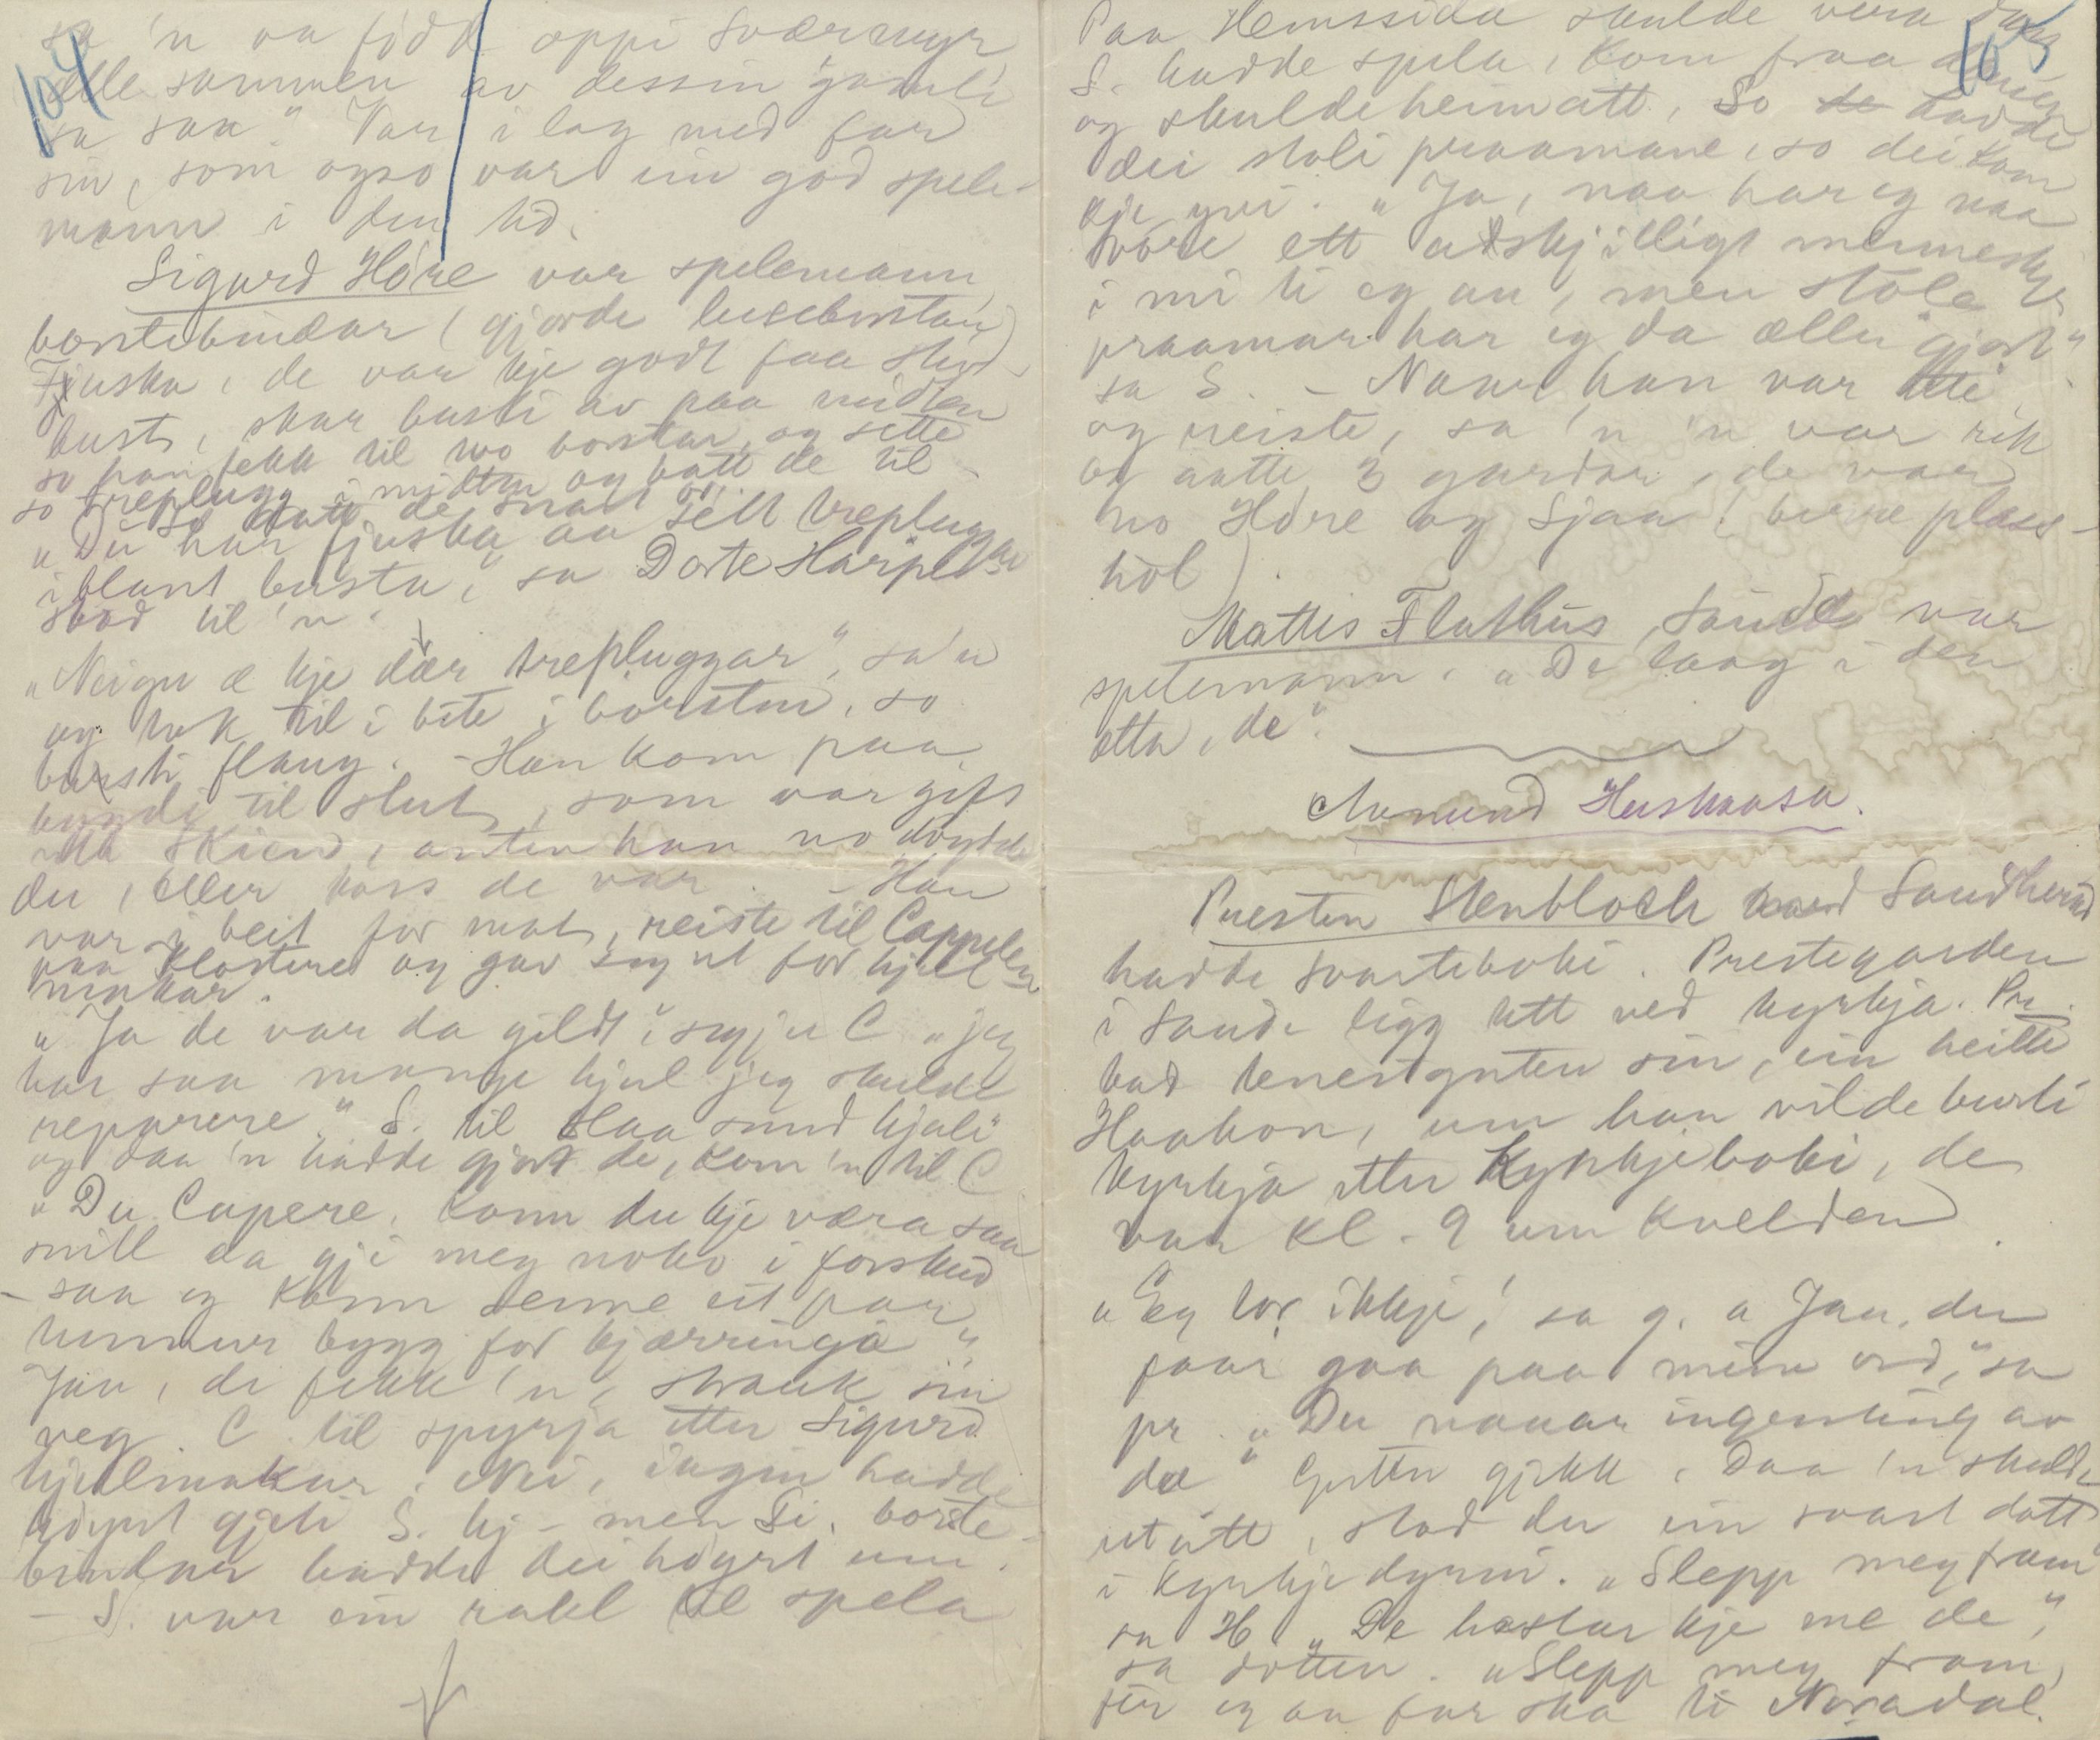 104
sa 'n va född oppi Sværmyr
alle sammen av dessin gamli
sa san." Var i lag med far
sin, som ogso var ein god spele-
mann i den tid.
Sigurd Höre var spelemann,
borstebindar (gjorde leiseburstar)
Fjuska, de var kje godt faa
bust, skar busti av paa midten
so han fekk til two borstar, og sette
so treplugg i midten og batt de til
"Du har fjuska aa sett treplugga
iblant busta," sa Dorte Härpe
stod til 'n.
"Neigu æ kje dær trepluggar", sa'n
og tok til i bite i borsten, so
bursti flaug. - Han kom paa
bygdi til slut, som var gift
Skien, anten han no döydde
der, eller hoss de var. - Han
var i beit for mat, reiste til Cappelen
paa Klosteret og gav seg ut for hjul-
makar.
"Ja de var da gildt," segjer C "jeg
har saa mange hjul jeg skulde
reparere." S. til slaa sund hjuli
og daa 'n hadde gjort de, kom 'n til C
"Du Capere, kann du kje væra saa
snill da gji meg noko i forskud
- saa eg kann senne eit par
tunnur bygg for kjærringa"
Jau, de fekk 'n, strauk sin
veg. C. til spyrja etter Sigurd
hjulmakar. Nei, ingin hadde
höyrt gjeti S. hj - men Si. borste-
bindar hadde dei höyrt um.
- S. var ein rakl til spela
105
Paa Hemssida skulde vera dans
S. hadde spela, kom fraa
og skulde heimatt. So de hadde
dei stoli praamane, so dei kom
kje yvi. "Ja, naa har eg naa
vore ett udskjilligt menneskje
i mi ti eg au, men stöle
praamar har eg da alder gjort"
sa S. - Naar han var ute
og reiste, sa 'n 'n var rik
og aatte 3 gardar, de var
no Höre og Sjaa (berre plass-
höl)
Mattis Flathus, Saude var
spelemann. "De laag i den
ætta, de".
Aamund Huskaasa.
Presten Stenbloch Saudherad
hadde svarteboki. Prestegarden
i Saude ligg tett ved kyrkja. Pr.
bad tenesguten sin, ein heitte
Haakon, um han vilde burti
kyrkja etter Kyrkjeboki, de
var kl. 9 um kvelden
"Eg tor ikkje," sa g. a Jau, du
faar gaa paa mine ord," sa
pr. "Du vaaar ingenting av
de" Guten gjekk. Daa 'n skulde
ut att, stod der ein svart dott
i kyrkjedynni. "Slepp meg fram
sa H. "De hastar kje me de",
sa dotten. "Slepp meg fram,
för eg au far ska ti Noradal.